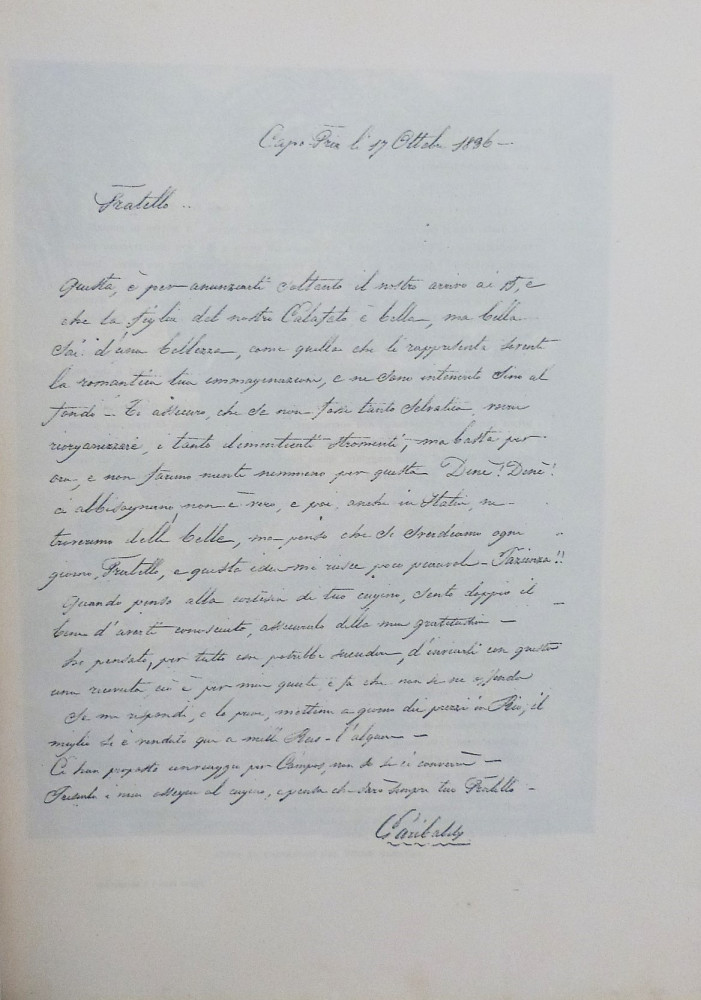 Capo-Frio li 17 Ottobre 1836 —
Fratello ..
Questa, è per anunziarti soltanto il nostro arrivo ai 15, e
che la figlia del nostro Calafato è bella, ma bella
Sai d'una bellezza, come quella che ti rappresenta sovente
la romantica tua immaginazione, e ne sono intenerito sino al
fondo — Ti assicuro, che se non fosse tanto selvatica, vorrei
riorganizzare, i tanto stromenti, ma basta per
ora, e non faremo niente nemmeno per questa Dene! Dene!
ci abbisognano non è vero, e poi, anche in Italia, ne
troveremo delle belle, ma penso che si ogni
giorno, Fratello, e questa idea mi riesce poco piacevole — Pazienza!!
Quando penso alla cortesia di tuo cugino, sento doppio il
bene d'averti conosciuto, assicuralo della mia gratitudine —
ho pensato, per tutto cosa potrebbe succedere, d'inviarti con questa
una ricevuta, ciò è per mia quiete, e fa che non se ne offenda
Se mi rispondi, e lo puoi, mettimi a giorno dei prezzi in Rio; il
miglio si è venduto qui a mille Reis — l'
Ci han proposto un viaggio per Campos, non so se ci converrà —
i miei ossequi al cugino, e pensa che sarò sempre tuo Fratello —
Garibaldi